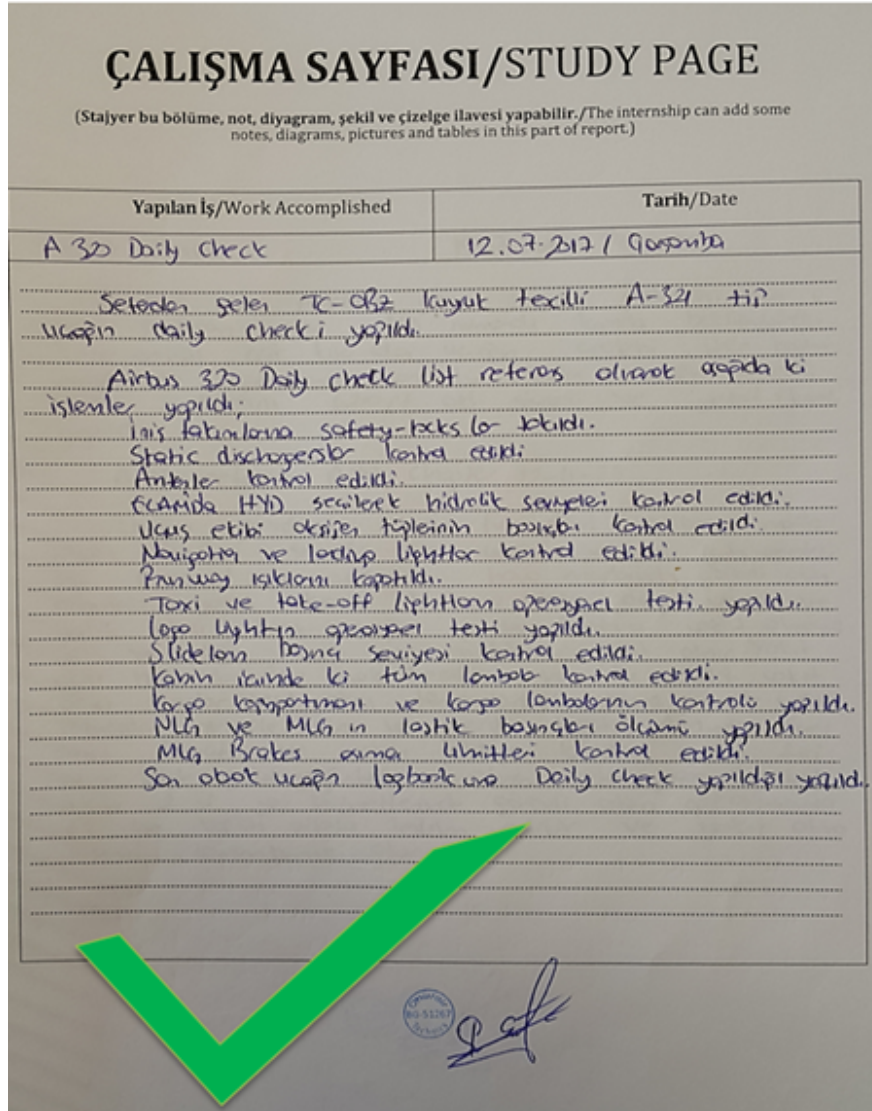 ÇALIŞMA SAYFASI/STUDY PAGE
(Stajyer bu bölüme, not, diyagram, şekil ve çizelge ilavesi yapabilir./The internship can add some
notes, diagrams, pictures and tables in this part of report.)
Yapılan İş/Work Accomplished
Tarih/Date
A 320 Daily Check
12.07.2017 / Çarşamba
Seferden gelen TC-OBZ kuyruk tescilli A-321 tip
uçağın daily check i yapıldı.
Airbus 320 Daily check list referans alınarak aşağıda ki
işlemler yapıldı;
İniş takımlarına safety-locks lar takıldı.
Static dischargerslar kontrol edildi
Antenler kontrol edildi.
ECAMida HYD seçilerek hidrolik seviyeleri kontrol edildi.
Uçuş ekibi oksijen tüplerinin basıncı kontrol edildi.
Navigation ve landing lightlar kontrol edildi.
ışıkları kapatıldı.
Taxi ve take-off lightların operasyonel testi yapıldı.
Logo lightın operasyonel testi yapıldı.
Slideların basınç seviyesi kontrol edildi.
Kabin içinde ki tüm kontrol edildi.
Kargo kompartmanı ve kargo kontrolü yapıldı.
NLG ve MLG in lastik basınçları ölçümü yapıldı.
MLG Brakes aşınma limitleri kontrol edildi.
Son olarak uçağın logbook una Daily check yapıldığı yazıldı.
BG-51267